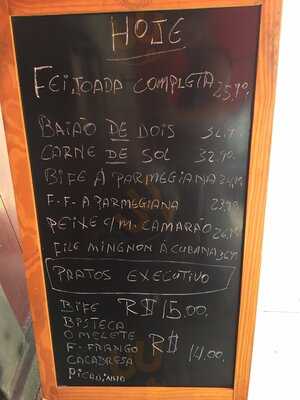 HOJE
FEIJOADA COMPLETA 25,90
BAIÃO DE DOIS
CARNE DE SOL 32,90
BIFE À PARMEGIANA
F-F-A PARMEGIANA 23,90
PEIXE C/M. CAMARÃO 26,90
FILE MINGNON À CUBANA
PRATOS EXECUTIVO
BIFE R$ 15,00
BISTECA
OMELETE
F-FRANGO R$ 14,00
CACADRESA
PICADINHO